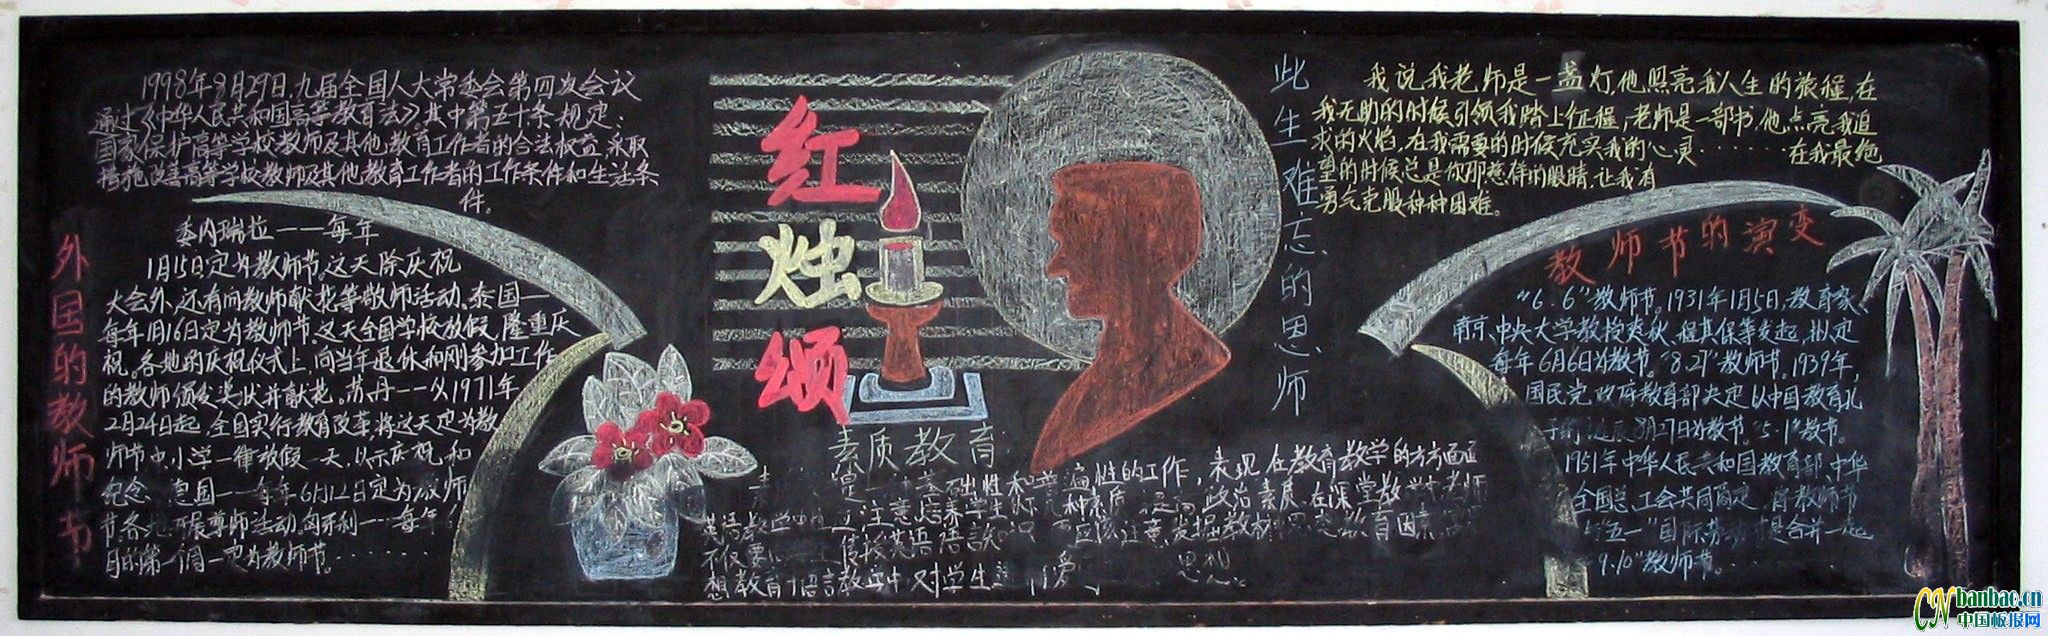 1998年8月29日,九届全国人大常委会第四次会议
通过《中华人民共和国高等教育法》其中第五十条规定:
国家保护高等学校教师及其他教育工作者的合法权益,采取
措施改善高等学校教师及其他教育工作者的工作条件和生活条
件。
外国的教师节
委内瑞拉——每年
1月15日定为教师节,这天除庆祝
大会外,还有向教师献花等敬师活动。泰国—
每年1月16日定为教师节。这天全国学校放假,隆重庆
祝。各地的庆祝仪式上,向当年退休和刚参加工作
的教师颁发奖状并献花。苏丹——从1971年
2月24日起,全国实行教育改革,将这天定为教
师节中小学一律放假一天,以示庆祝和
纪念。德国——每年6月12日定为教师
节,各地开展尊师活动。匈牙利——每年6
月的第一个周一定为教师节......
红烛颂
此生难忘的恩师
我说我老师是一盏灯,他照亮我人生的旅程,在
我无助的时候引领我踏上征程;老师是一部书,他点亮我追
求的火焰,在我需要的时候充实我的心灵......在我最绝
望的时候总是你那慈祥的眼睛,让我有
勇气克服种种困难。
教师节的演变
“6.6”教师节。1931年1月5日,教育家、
南京、中央大学教授爽秋、程其保等发起,拟定
每年6月6日为教节。“8.27”教师节。1939年,
国民党政府教育部决定以中国教育孔
子的诞辰8月27日为教节。“5.1”教节。
1951年中华人民共和国教育部、中华
全国总工会共同商定,将教师节
与“五一”国际劳动 合并一起
9.10”教师节。
素质教育
础性和普遍性的工作,表现在教育教学的方方面面
英语教学中 注意培养学生 种素质 提高政治素质。在深 教 老师
不仅要 传授英语语 应该注意发掘教材 思 教育因素
想教育 语言教学中 对学生 爱 思想
CN banbao.cn
中国板报网